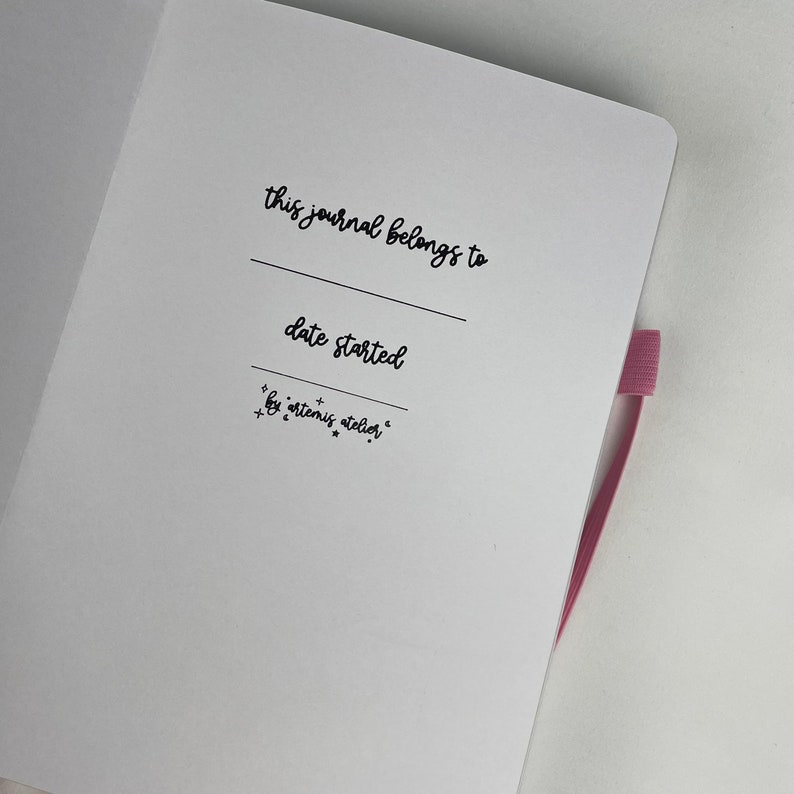 this journal belongs to
date started
by artemis atelier